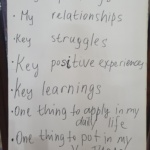 • My relationships
• Key struggles
• Key positive experiences
• Key learnings
• One thing to apply in my
daily life
• One thing to put in my